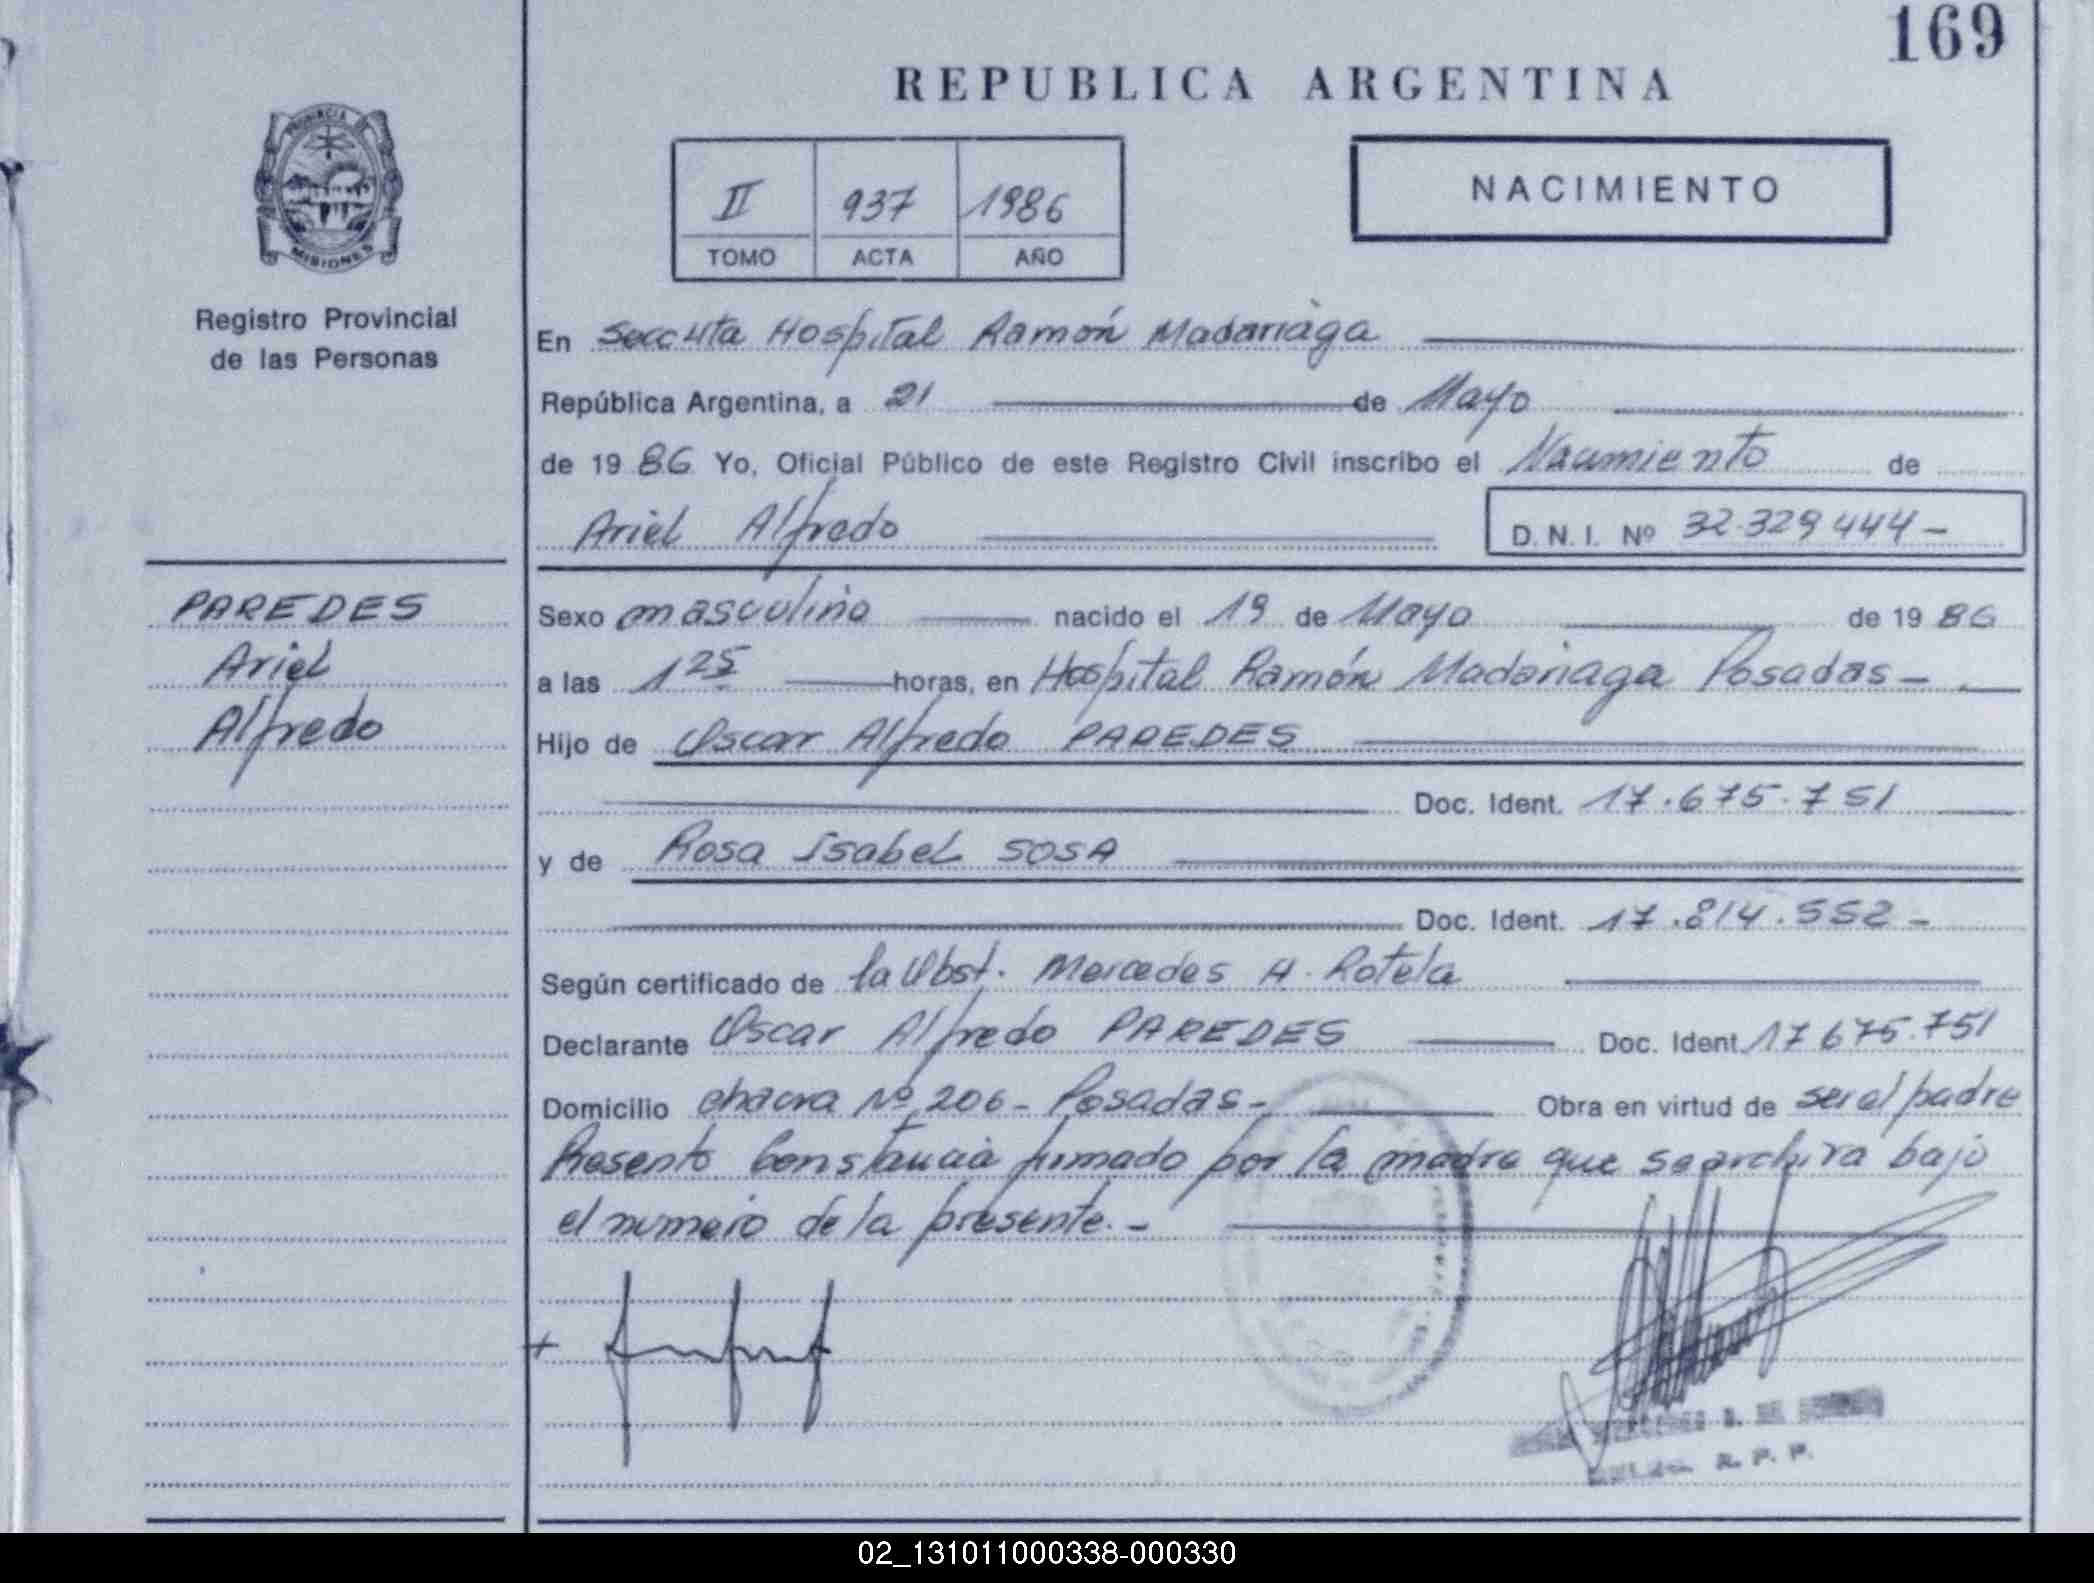 169
REPUBLICA ARGENTINA
PROVINCIA DE
MISIONES
Registro Provincial
de las Personas
II 937 1986
TOMO ACTA AÑO
NACIMIENTO
En Secc 4ta Hospital Ramón Madariaga
República Argentina, a 21 de Mayo
de 19 86 Yo, Oficial Público de este Registro Civil inscribo el Nacimiento de
Ariel Alfredo D. N. I. Nº 32.329.444-
PAREDES
Ariel
Alfredo
Sexo masculino nacido el 19 de Mayo de 19 86
a las 1 25 horas, en Hospital Ramón Madariaga Posadas-
Hijo de Oscar Alfredo PAREDES
Doc. Ident. 17.675.751
y de Rosa Isabel SOSA
Doc. Ident. 17.814.552-
Según certificado de la Obst. Mercedes A. Rotela
Declarante Oscar Alfredo PAREDES Doc. Ident. 17675.751
Domicilio chacra Nº 206- Posadas- Obra en virtud de ser el padre
Presento Constancia firmado por la madre que se archiva bajo
el numero de la presente.-
R. P. P.
02_131011000338-000330